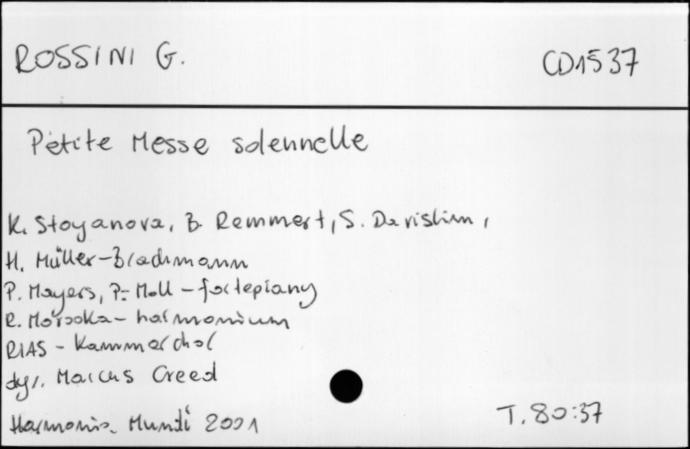 ROSSINI G. CD1537
Petite Messe solennelle
K. Stoyanova, B. Remmert, S. Davislim,
H. Müller-Brachmann
P. Mayers, P. Moll - fortepiany
R. - harmonium
RIAS - Kammerchor
dyr. Marcus Creed
Harmonia Mundi 2001 T. 80:37